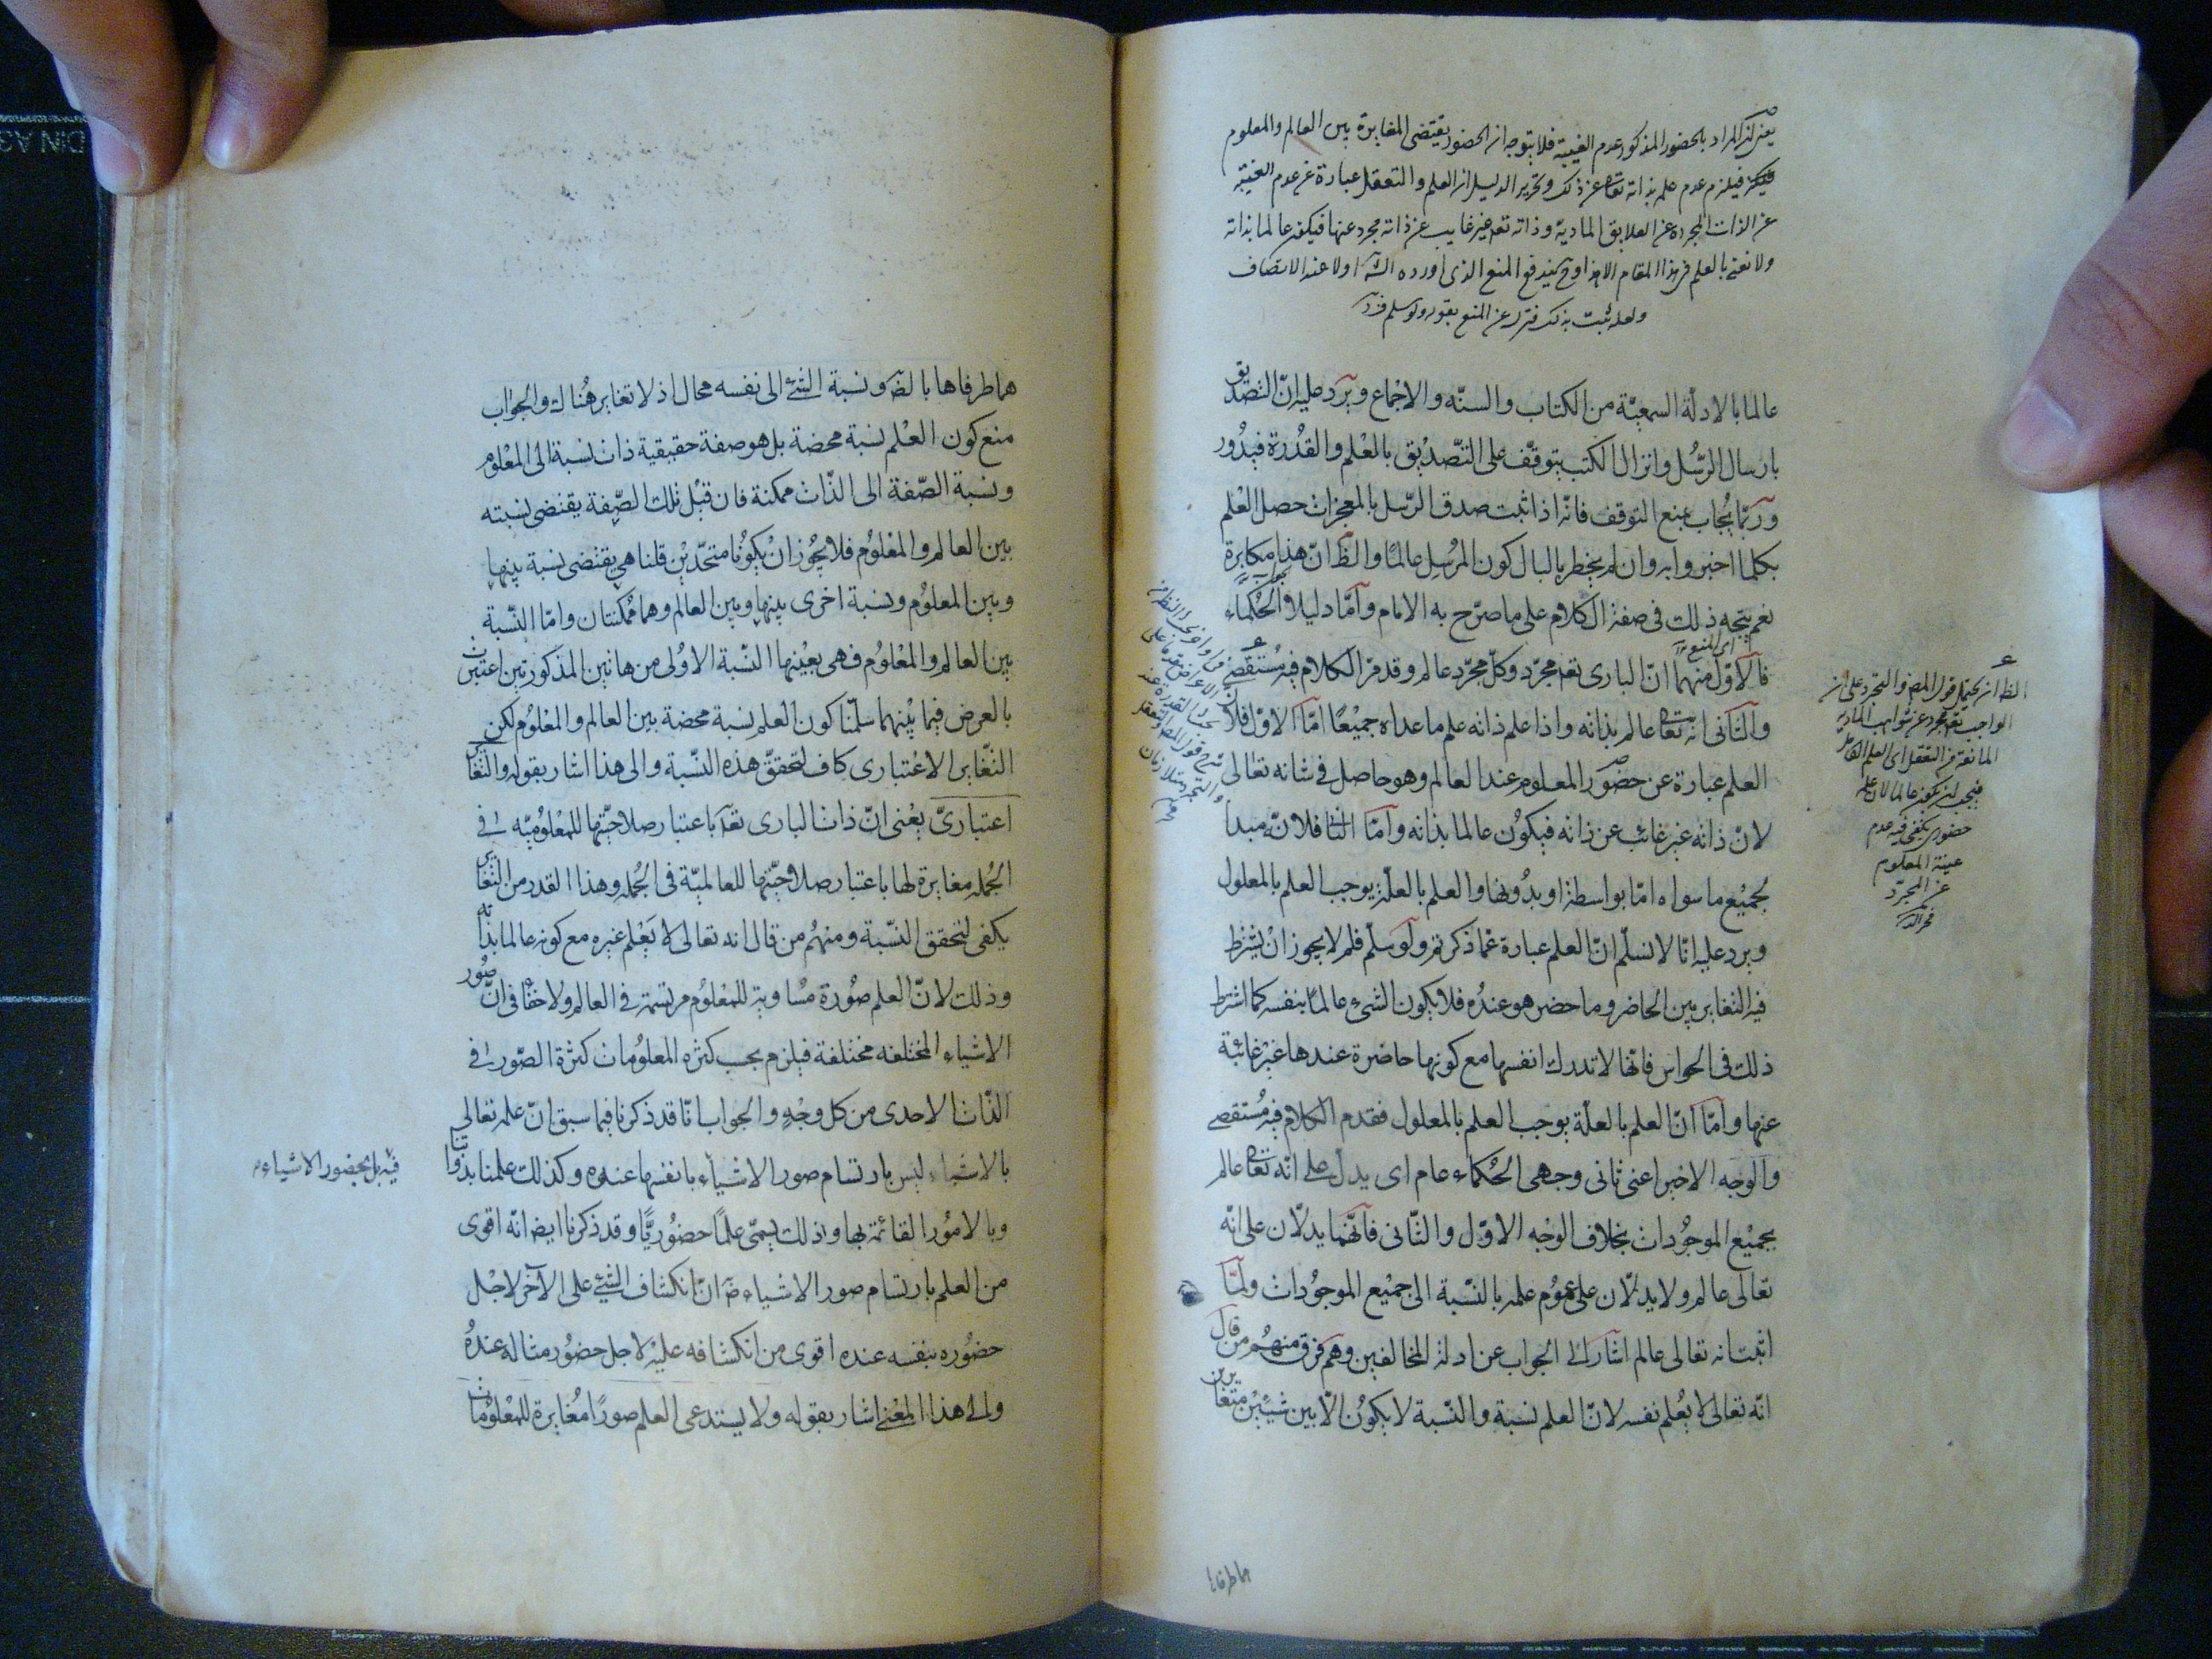 يعنى ان المراد بالحضور المذكور عدم الغيبة فلا يتوجه ان الحضور يقتضى المغايرة بين العالم والمعلوم
فيلزم عدم علمه بذاته تعالى عن ذلك وتحرير الدليل ان العلم والتعقل عبارة عن عدم الغيبة
عن الذات المجردة عن العلايق المادية وذاته تعـ غير غايب عن ذاته مجرد عنها فيكون عالما بذاته
ولا نعنى بالعلم فى هذا المقام الا هذا وح يندفع المنع الذى اورده الشـ اولا عند الانصاف
ولعله ثبت بذلك فتنزل عن المنع بقوله ولو سلم
عالما بالادلة السمعيّة من الكتاب والسنّه والاجماع ويرد عليه انّ التصديق
بارسال الرّسُل وانزال الكتب يتوقّف على التّصديق بالعلم والقدُرة فيدُور
وربّما يُجاب بمنع التوقف فانّه اذا ثبت صدق الرّسل بالمعجزات حصل العْلم
بكلما اخبروا به وان لم يخطر بالبال كون المرُسِل عالمًا والظّ انّ هذا مكابرة
نعم يتجه ذلك فى صفة الكلام على ما صرّح به الامام وامّا دليلا الحُكماء
فالاوّل منهما انّ البارى تعـ مجرّد وكلّ مجرّد عالم وقد مرّ الكلام فيه مُستقصىً
والثانى انه تعالى عالم بذاته واذا علم ذاته علم ما عداه جميعًا امّا الاوّل فلانّ
العلم عبارة عن حضور المعلوم عند العالم وهو حاصل فى شانه تعالى
لانّ ذاته غير غائب عن ذاته فيكون عالما بذاته وامّا الثا فلانّه مبدا
لجميع ما سواه امّا بواسطة او بدُونها والعلم بالعلّة يوجب العلم بالمعلول
ويرد عليه انّا لا نسلّم انّ العلم عبارة عمّا ذكرتم ولو سلّم فلم لا يجوز انْ يشترط
فيه التغاير بين الحاضر وما حضر هو عندُه فلا يكون الشىء عالمًا بنفسه كما اشترط
ذلك فى الحواس فانّها لا تدرك انفسها مع كونها حاضرة عندها غير غائبة
عنها وامّا انّ العلم بالعلّة يوجب العلم بالمعلول فقدم الكلام فيه مُستقصى
والوجه الاخير اعنى ثانى وجهى الحُكماء عام اى يدل على انّه تعالى عالم
بجميْع الموجُودات بخلاف الوجْه الاوّل والثّانى فانّهما يدلّان على انّه
تعالى عالم ولا يدلّان على عمُوم علمه بالنّسبة الى جميْع الموجُودات ولمّا
اثبت انه تعالى عالم اشار الى الجواب عن ادلة المخالفين وهم فرق منهُم من قال
انّه تعالى لا يعُلم نفسه لانّ العلم نسبة والنّسبة لا يكوُن الّا بين شيئيْن متغايرين
الظ ان يحمل قول المصـ والتجرد على ان
الواجب تعـ مجرد عن شوايب المادية
المانعة من التعقل اى العلم
فيجب ان يكون عالما لان علمه
حضورى يكفى فيه عدم
غيبة المعلوم
عن المجرّد
فخر الدين
هما طرفاها
هما طرفاها بالضرـ ونسبة الشئ الى نفسه محال اذ لا تغاير هُناك والجواب
منع كون العْلم نسبة محضة بل هو صفة حقيقية ذات نسبة الى المعْلوم
ونسبة الصّفة الى الذّات ممكنة فان قيْل تلك الصّفة يقتضى نسبته
بين العالم والمعْلوُم فلا يجُوز انْ يكوُنا متحّديْن قلنا هى يقتضى نسبة بينها
وبين المعلوُم ونسبة اخرى بينها وبين العالم وهما مُمكنتان وامّا النّسبة
بين العالم والمعْلوُم فهى بعيْنها النّسبة الاوُلى من هاتين المذكورتين اعتبرت
بالعرض فيما بيْنهما سلّمنا كون العلم نسبة محضة بين العالم والمعْلوُم لكن
التّغاير الاعْتبارى كاف لتحققّ هذه النّسبة والى هذا اشار بقوله والتّغاير
اعتبارىّ يعْنى انّ ذات البارى تعـ باعتبار صلاحيّتها للمعْلوُميّه فى
الجُمله مغايرة لها باعتبار صلاحيّتها للعالميّة فى الجُمله وهذا القدر من التّغاير
يكفى لتحقق النّسبة ومنهُم من قال انه تعالى لا يَعْلم غيره مع كونه عالما بذاته
وذلك لانّ العلم صُورة مُساوية للمعْلوُم مرتسمة فى العالم ولا خفا فى انّ صُور
الاشياء المختلفه مختلفة فيلزم بحسب كثره المعلوُمات كثرة الصّور فى
الذّات الاحدى من كل وجْهٍ والجواب انّا قد ذكرنا فيما سبق انّ علمه تعالى
بالاشياء ليس بارتسام صور الاشياء بانفسها عنده وكذلك علمنا بذواتنا
فيه بل بحضور الاشياء
وبالامُور القائمة بها وذلك يسمّى علمًا حضُوريًّا وقد ذكرنا ايضا انّه اقوى
من العلم بارتسام صور الاشياء ضـ انّ انكشاف الشئ على الآخر لاجْل
حضُوره بنفسه عنده اقوى من انكشافه عليْه لاجل حضُور مثاله عندهُ
والى هذا المعْنى اشار بقوله ولا يستدعى العلم صورًا مُغايرة للمعْلوُمات